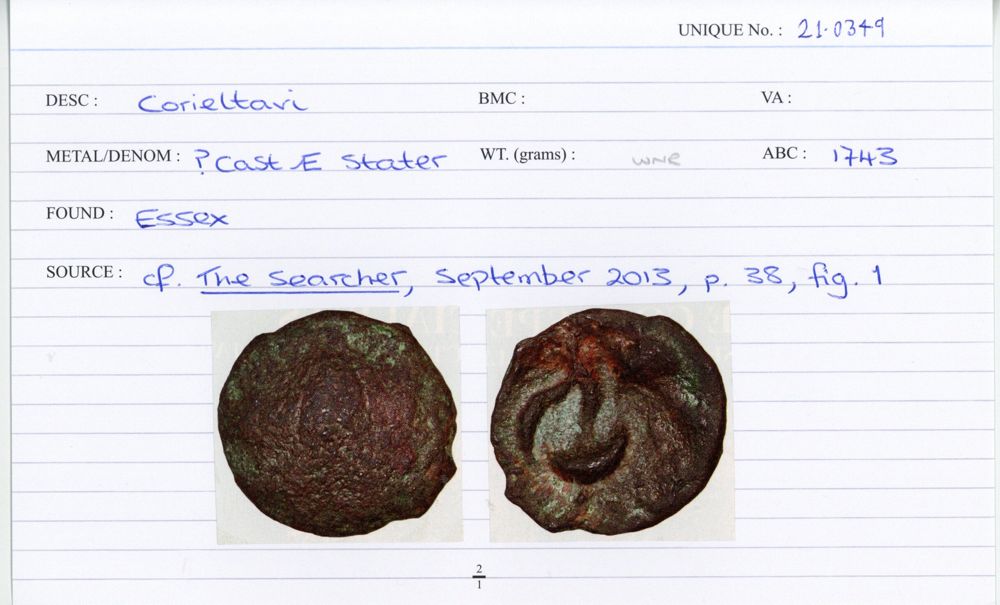 UNIQUE No. : 21.0349
DESC : Corieltavi BMC : VA :
METAL/DENOM : ? Cast Æ Stater WT. (grams) : wnr ABC : 1743
FOUND : Essex
SOURCE : cf. The Searcher, September 2013, p. 38, fig. 1
2
1